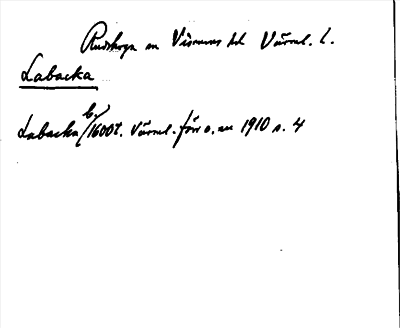 Rudskoga sn Visnums hd Värml. l.
Labacka
Labacka b./1600t. Värml. förr o. nu 1910 s. 4